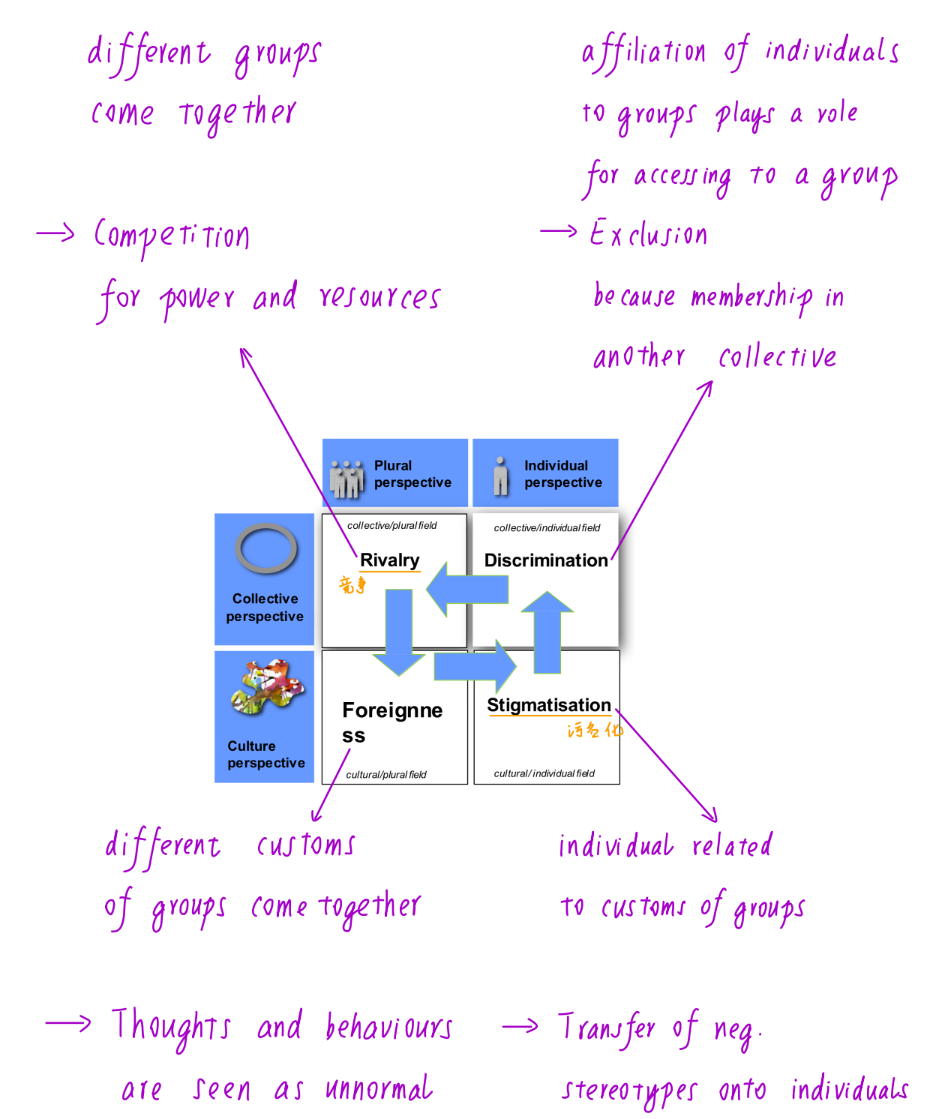 different groups
come together
→ Competition
for power and resources
affiliation of individuals
to groups plays a role
for accessing to a group
→ Exclusion
because membership in
another collective
Plural
perspective
Individual
perspective
Collective
perspective
collective/plural field
Rivalry
竞争
collective/individual field
Discrimination
Culture
perspective
Foreignne
ss
cultural/plural field
Stigmatisation
污名化
cultural/individual field
different customs
of groups come together
→ Thoughts and behaviours
are seen as unnormal
individual related
to customs of groups
→ Transfer of neg.
stereotypes onto individuals